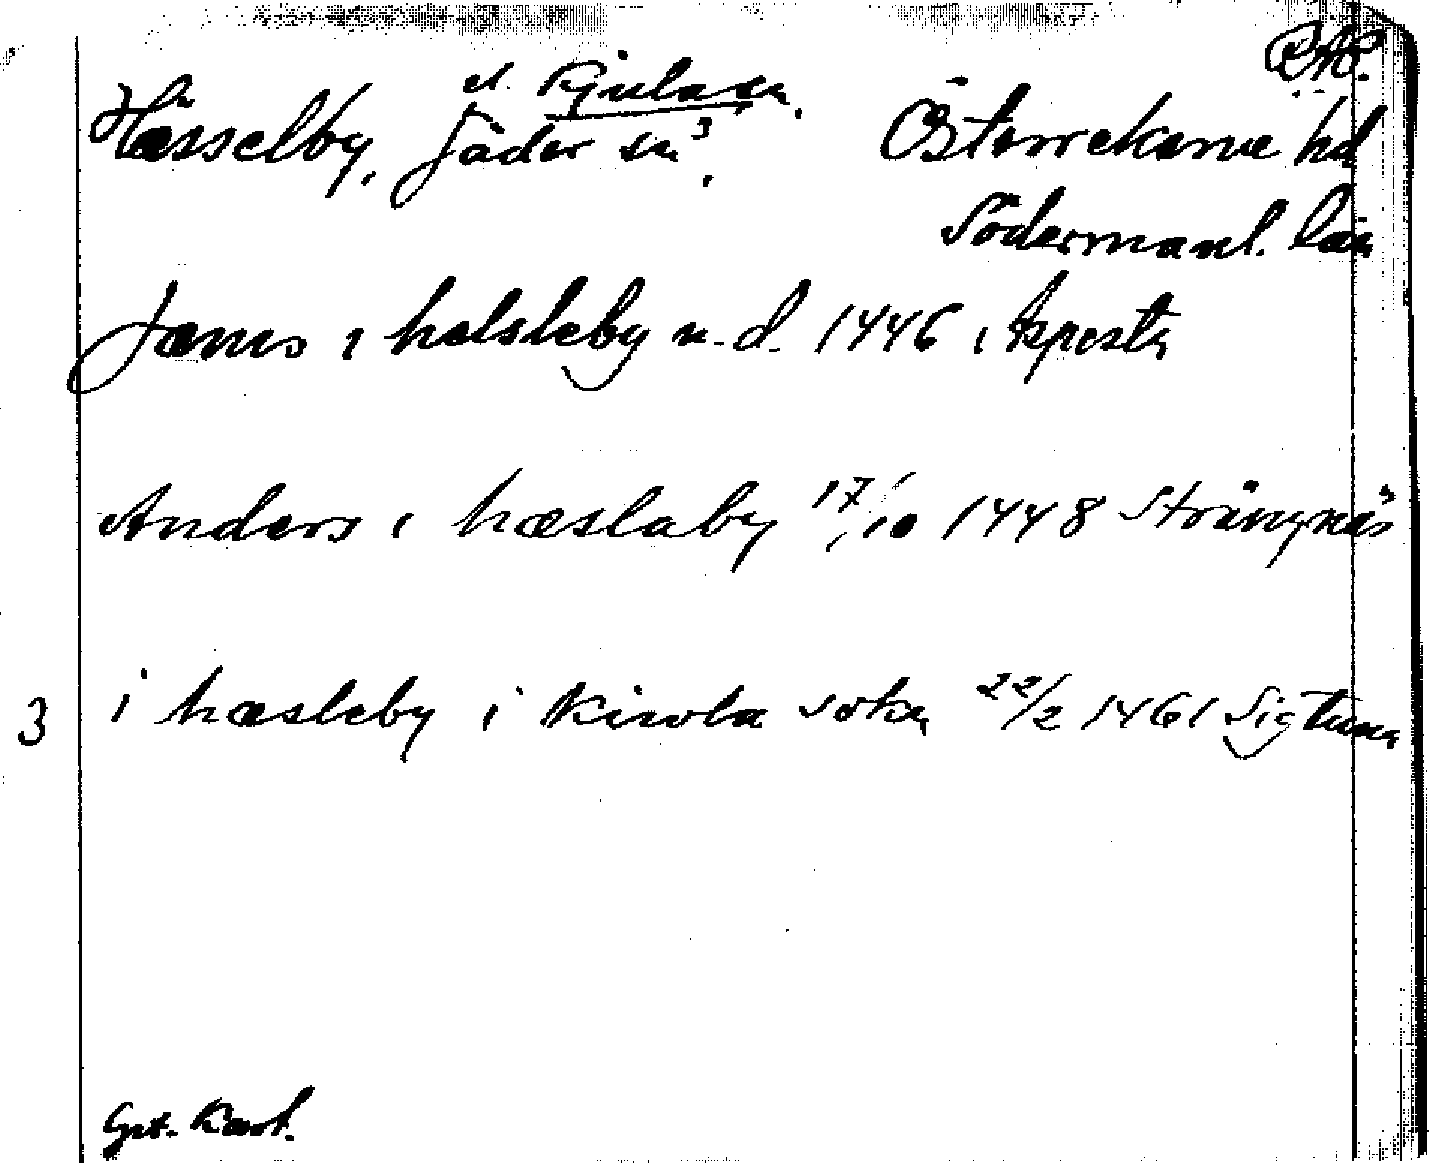 RAP.
el. Kjula sn.
Hässelby, Jäder sn³, Österrekarne hd
Södermanl. län
Jæms i helsleby u.d. 1446 i Aposta
Anders i hæslaby 17/10 1448 Strängnäs
3 i hæsleby i Kiwla sokn 22/2 1461 Sigtuna
Gst. Kart.